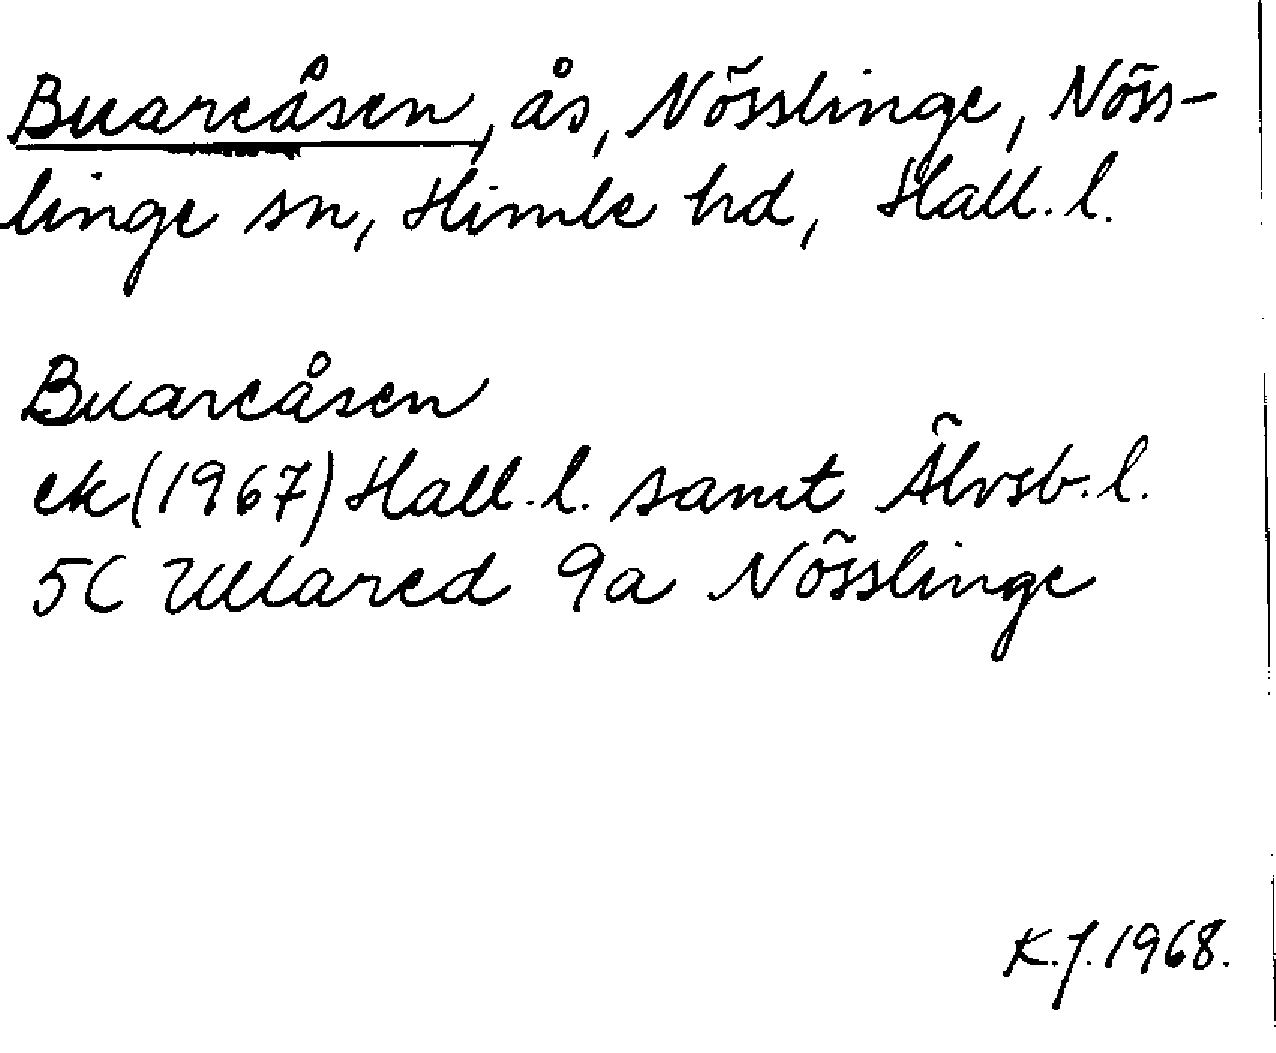 Buareåsen, ås, Nösslinge, Nöss-
linge sn, Himle hd, Hall. l.
Buareåsen
ek (1967) Hall. l. samt Älvsb. l.
5C Ullared 9a Nösslinge
K.J. 1968.